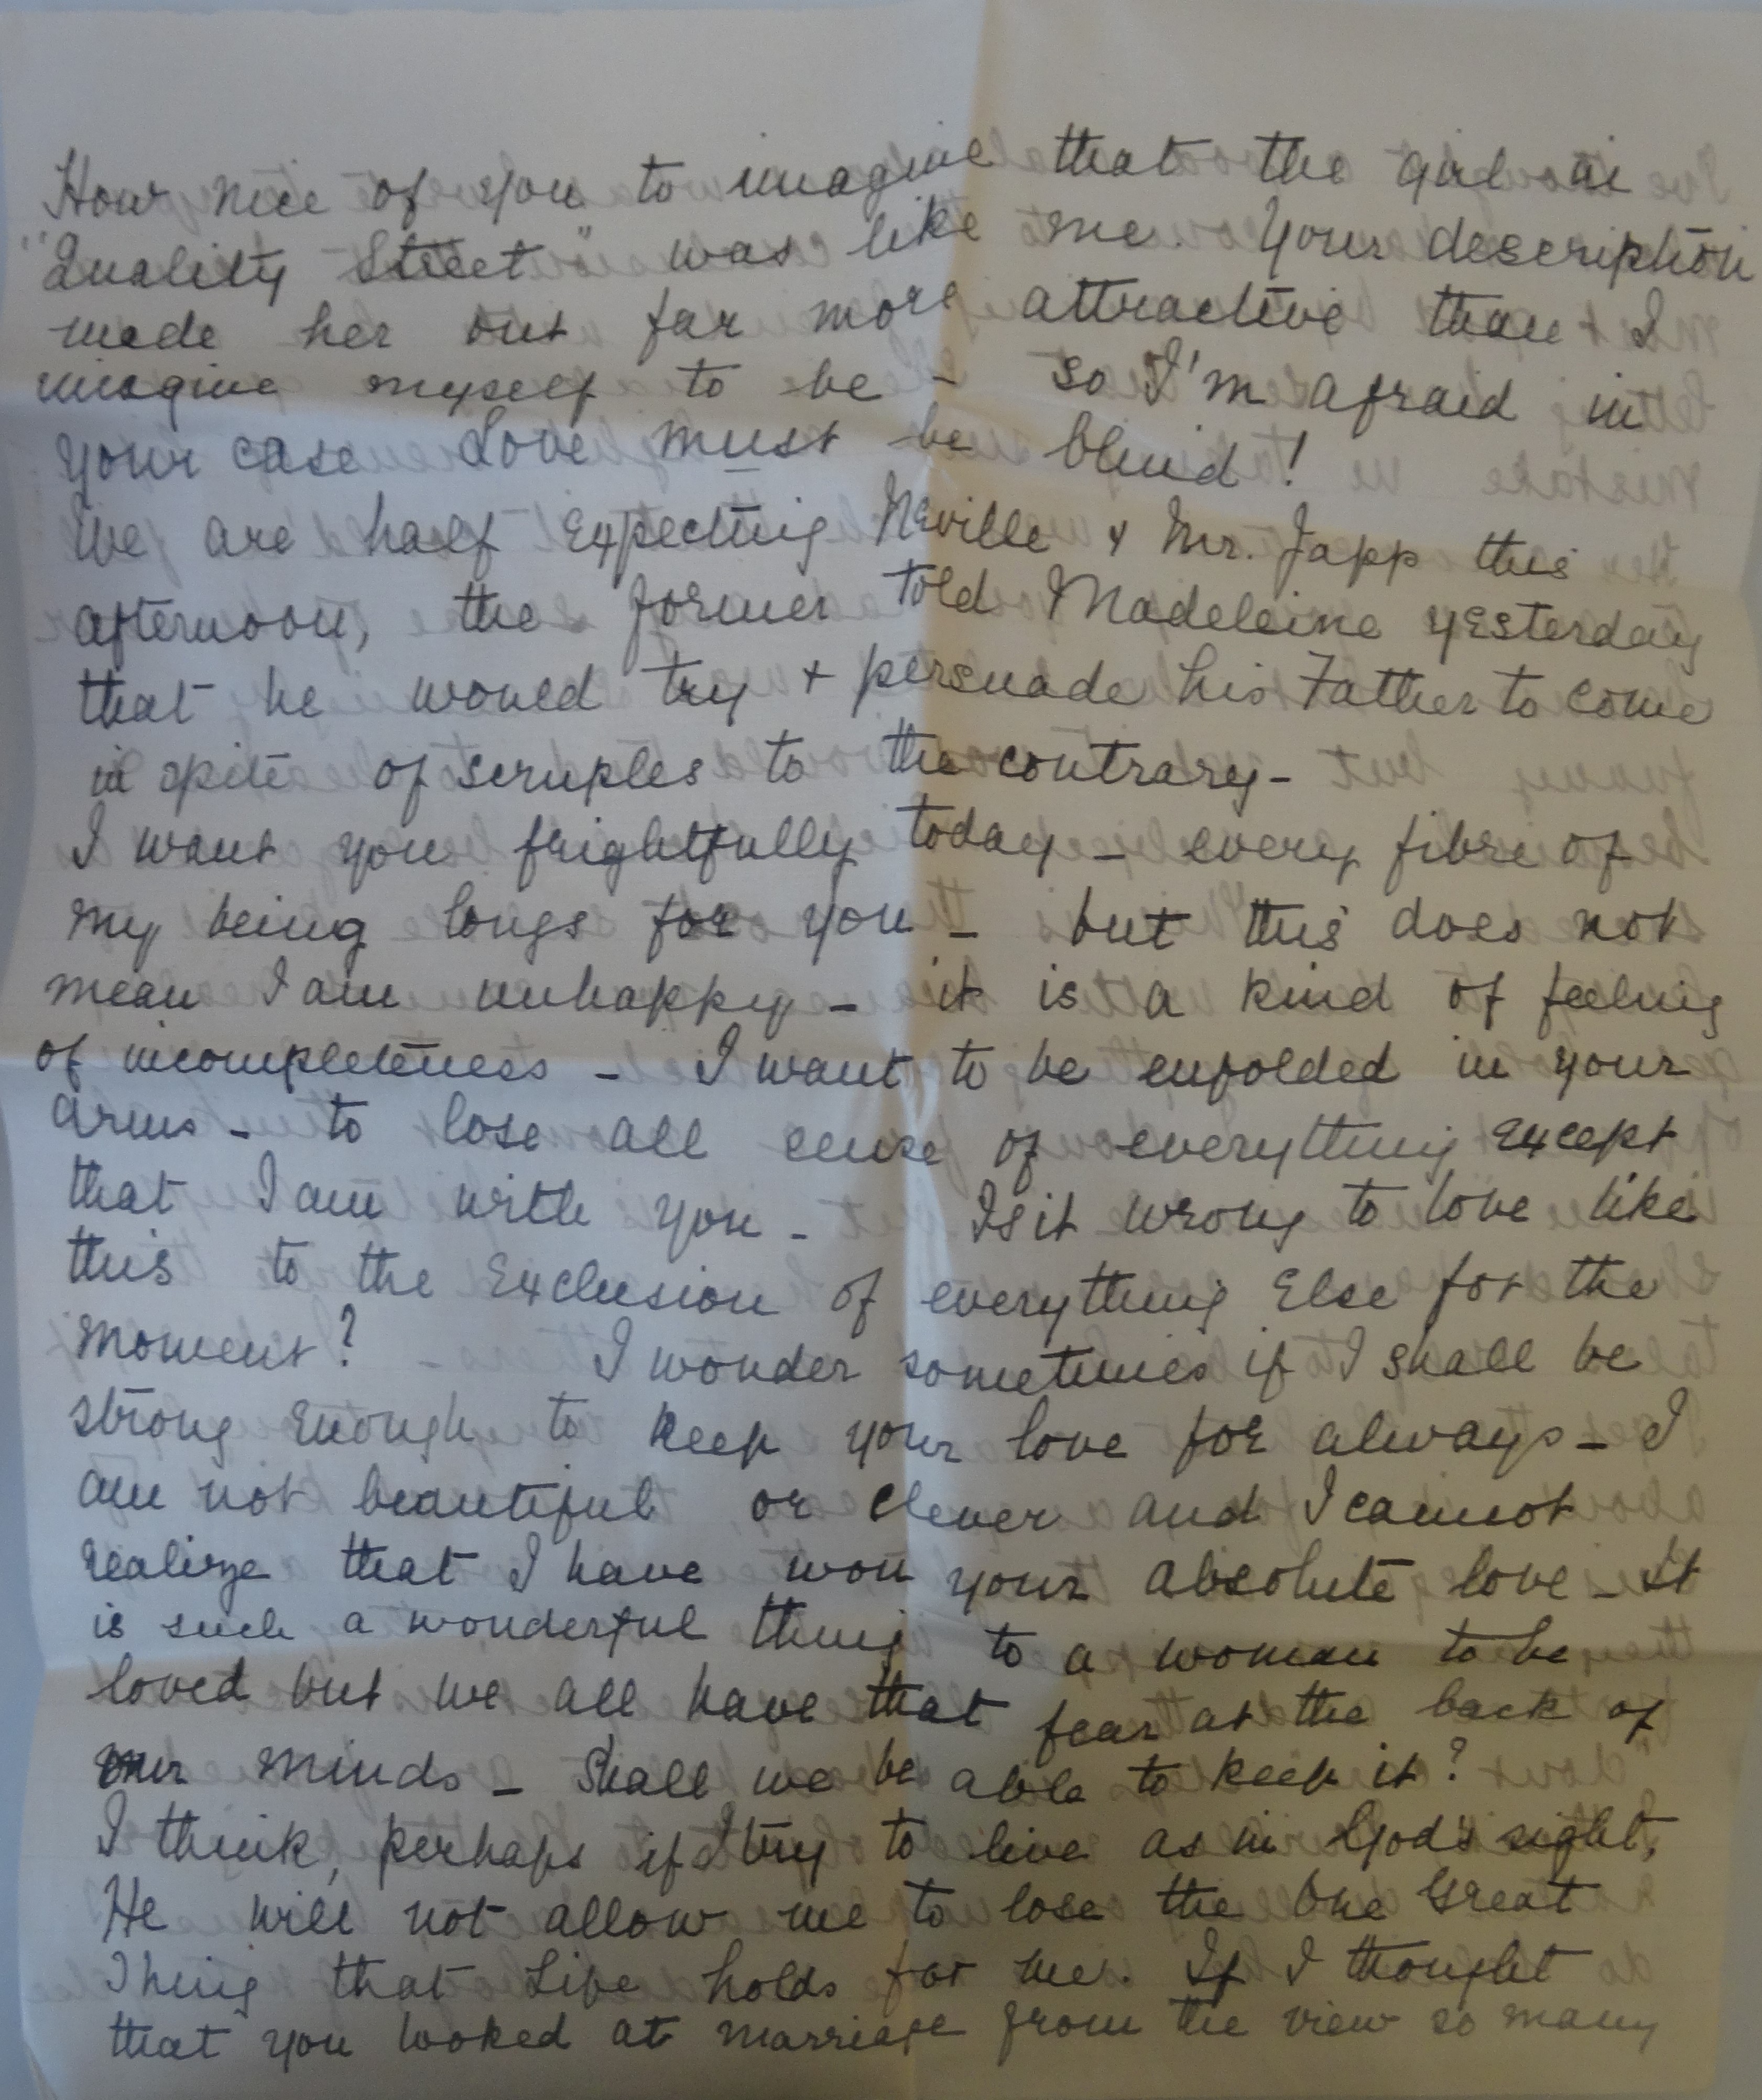 How nice of you to imagine that the girl in
"Quality Street" was like me. Your description
made her out far more attractive than I
imagine myself to be - so I'm afraid in
your case Love must be blind!
We are half expecting Neville & Mr. Japp this
afternoon, the former told Madeleine yesterday
that he would try + persuade his Father to come
in spite of scruples to the contrary-
I want you frightfully today - every fibre of
my being longs for you - but this does not
mean I am unhappy - it is a kind of feeling
of incompleteness - I want to be enfolded in your
arms - to lose all sense of everything except
that I am with you - Is it wrong to love like
this to the exclusion of everything else for the
moment? I wonder sometimes if I shall be
strong enough to keep your love for always - I
am not beautiful or clever and I cannot
realize that I have won your absolute love - it
is such a wonderful thing to a woman to be
loved but we all have that fear at the back of
our minds - Shall we be able to keep it?
I think, perhaps if I try to live as in God's sight,
He will not allow me to lose the One Great
Thing that Life holds for me. If I thought
that you looked at marriage from the view so many